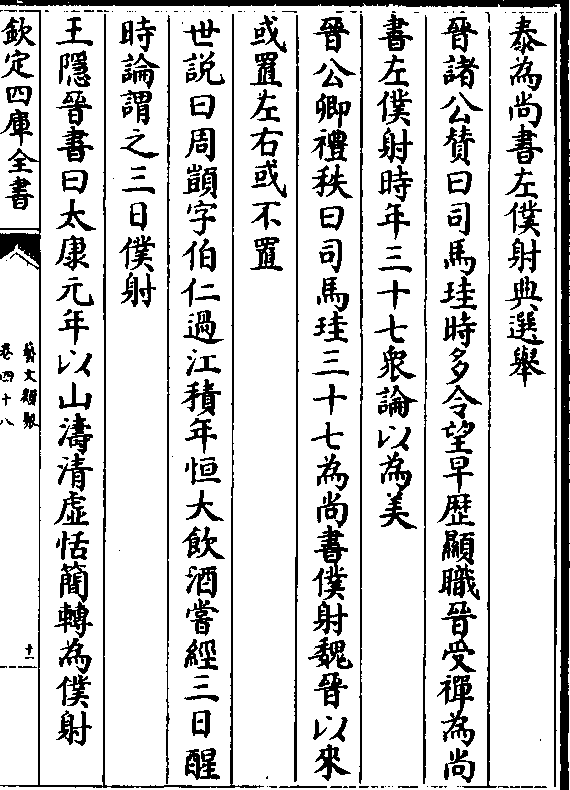 泰為尚書左僕射典選舉
晉諸公贊曰司馬珪時多令望早歴顯職晉受禪為尚
書左僕射時年三十七衆論以為美
晉公卿禮秩曰司馬珪三十七為尚書僕射魏晉以來
或置左右或不置
世説曰周顗字伯仁過江積年恒大飲酒嘗經三日醒
時論謂之三日僕射
王隱晉書曰太康元年以山濤清虛恬簡轉為僕射
欽定四庫全書
藝文類聚
卷四十八
十二